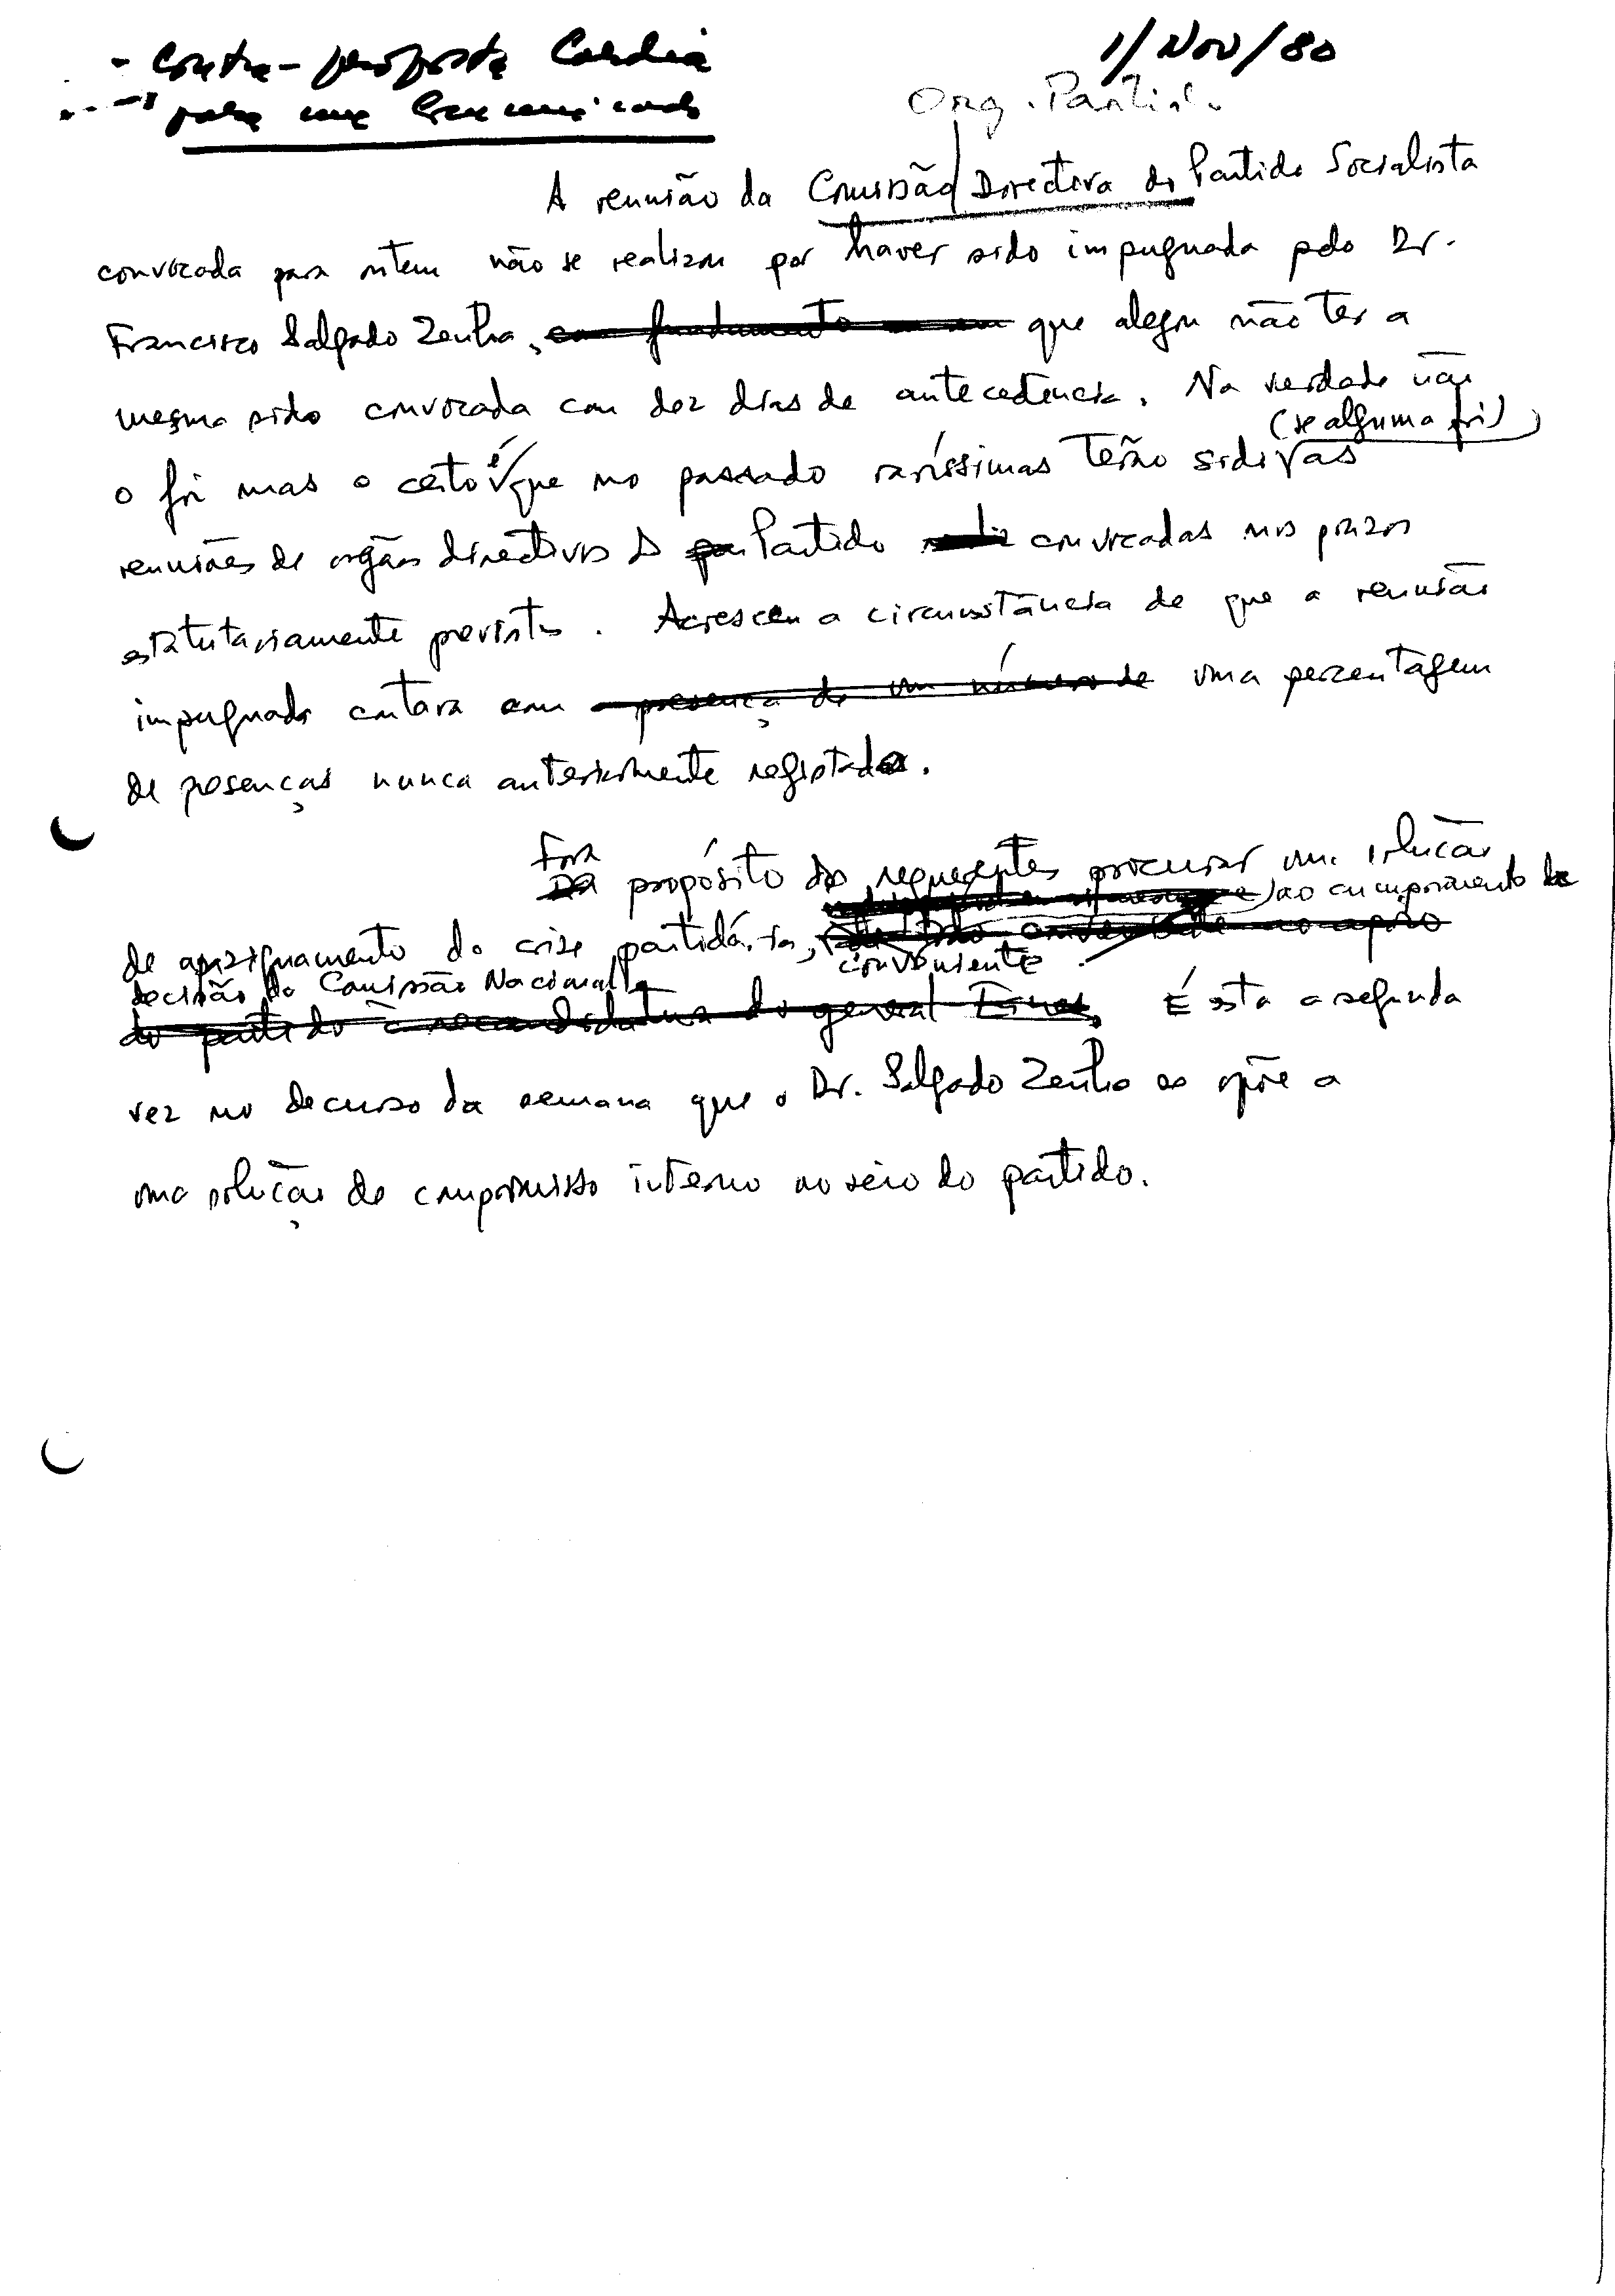 - Contra-proposta Cardia
para um Comunicado
1/Nov/80
Org. Partido
A reunião da Comissão Directiva do Partido Socialista
convocada para ontem não se realizou por haver sido impugnada pelo Dr.
Francisco Salgado Zenha, com fundamento em que alegou não ter a
mesma sido convocada com dez dias de antecedência. Na verdade não
(se alguma foi)
o foi mas o certo é que no passado raríssimas terão sido as
reuniões de orgãos directivos do Partido convocadas nos prazos
estatutariamente previstos. Acresceu a circunstância de que a reunião
impugnada contava com presença de um número de uma percentagem
de presenças nunca anteriormente registada.
Fora
propósito dos requerentes procurar uma solução
e ao cumprimento da
de apaziguamento da crise partidária, conveniente ao apoio
conveniente
decisão da Comissão Nacional
do partido à recandidatura do general Eanes. É esta a segunda
vez no decurso da semana que o Dr. Salgado Zenha se opõe a
uma solução de compromisso interno no seio do partido.